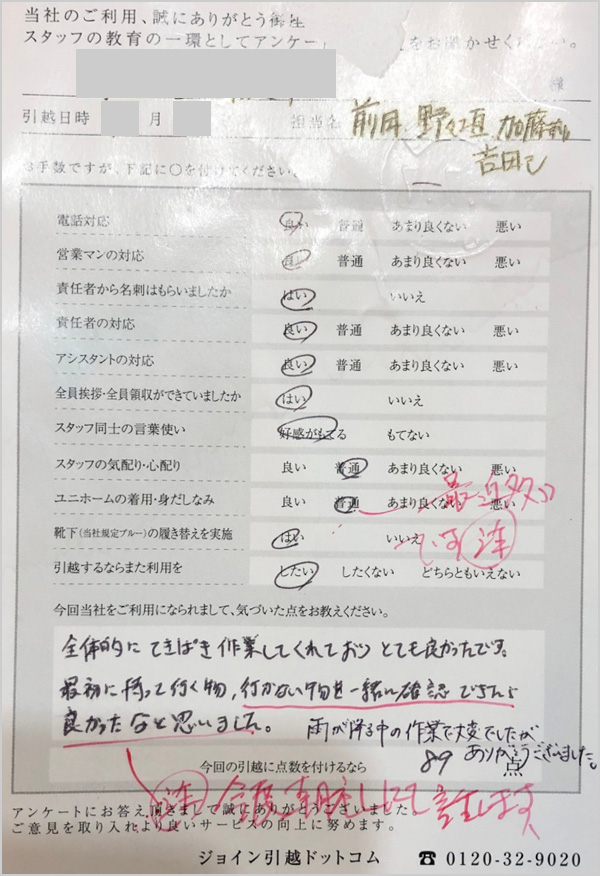 当社のご利用、誠にありがとう御座
スタッフの教育の一環としてアンケー をお聞かせください。
様
引越日時 月 担当名 前田 野々垣 加藤 吉田
手数ですが、下記に〇を付けてください
電話対応 良い 普通 あまり良くない 悪い
営業マンの対応 良い 普通 あまり良くない 悪い
責任者から名刺はもらいましたか はい いいえ
責任者の対応 良い 普通 あまり良くない 悪い
アシスタントの対応 良い 普通 あまり良くない 悪い
全員挨拶・全員領収ができていましたか はい いいえ
スタッフ同士の言葉使い 好感がもてる もてない
スタッフの気配り・心配り 良い 普通 あまり良くない 悪い
ユニホームの着用・身だしなみ 良い 普通 あまり良くない 悪い
最近多い
靴下(当社規定ブルー)の履き替えを実施 はい いいえ
です 注
引越するならまた利用を したい したくない どちらともいえない
今回当社をご利用になられまして、気づいた点をお教えください。
全体的に てきぱき作業してくれており とても良かったです。
最初に持って行く物、行かない物を一緒に確認できたら
良かったなと思いました。 雨が降る中の作業で大変でしたが
ありがとうございました。
今回の引越に点数を付けるなら 89 点
注 今後
アンケートにお答え頂きまして誠にありがとうございました
ご意見を取り入れより良いサービスの向上に努めます。
ジョイン引越ドットコム ☎ 0120-32-9020